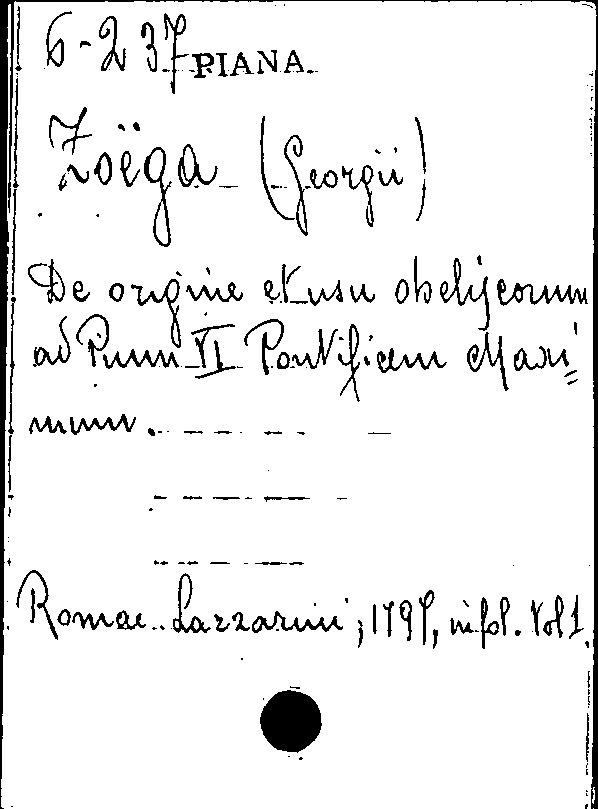 6-2 37 PIANA
Zoëga (Georgii)
De origine et usu obeliscorum
ad Pium VI Pontificem Maxi=
mum.
Romae Lazzarini, 1797, in fol. Vol 1.